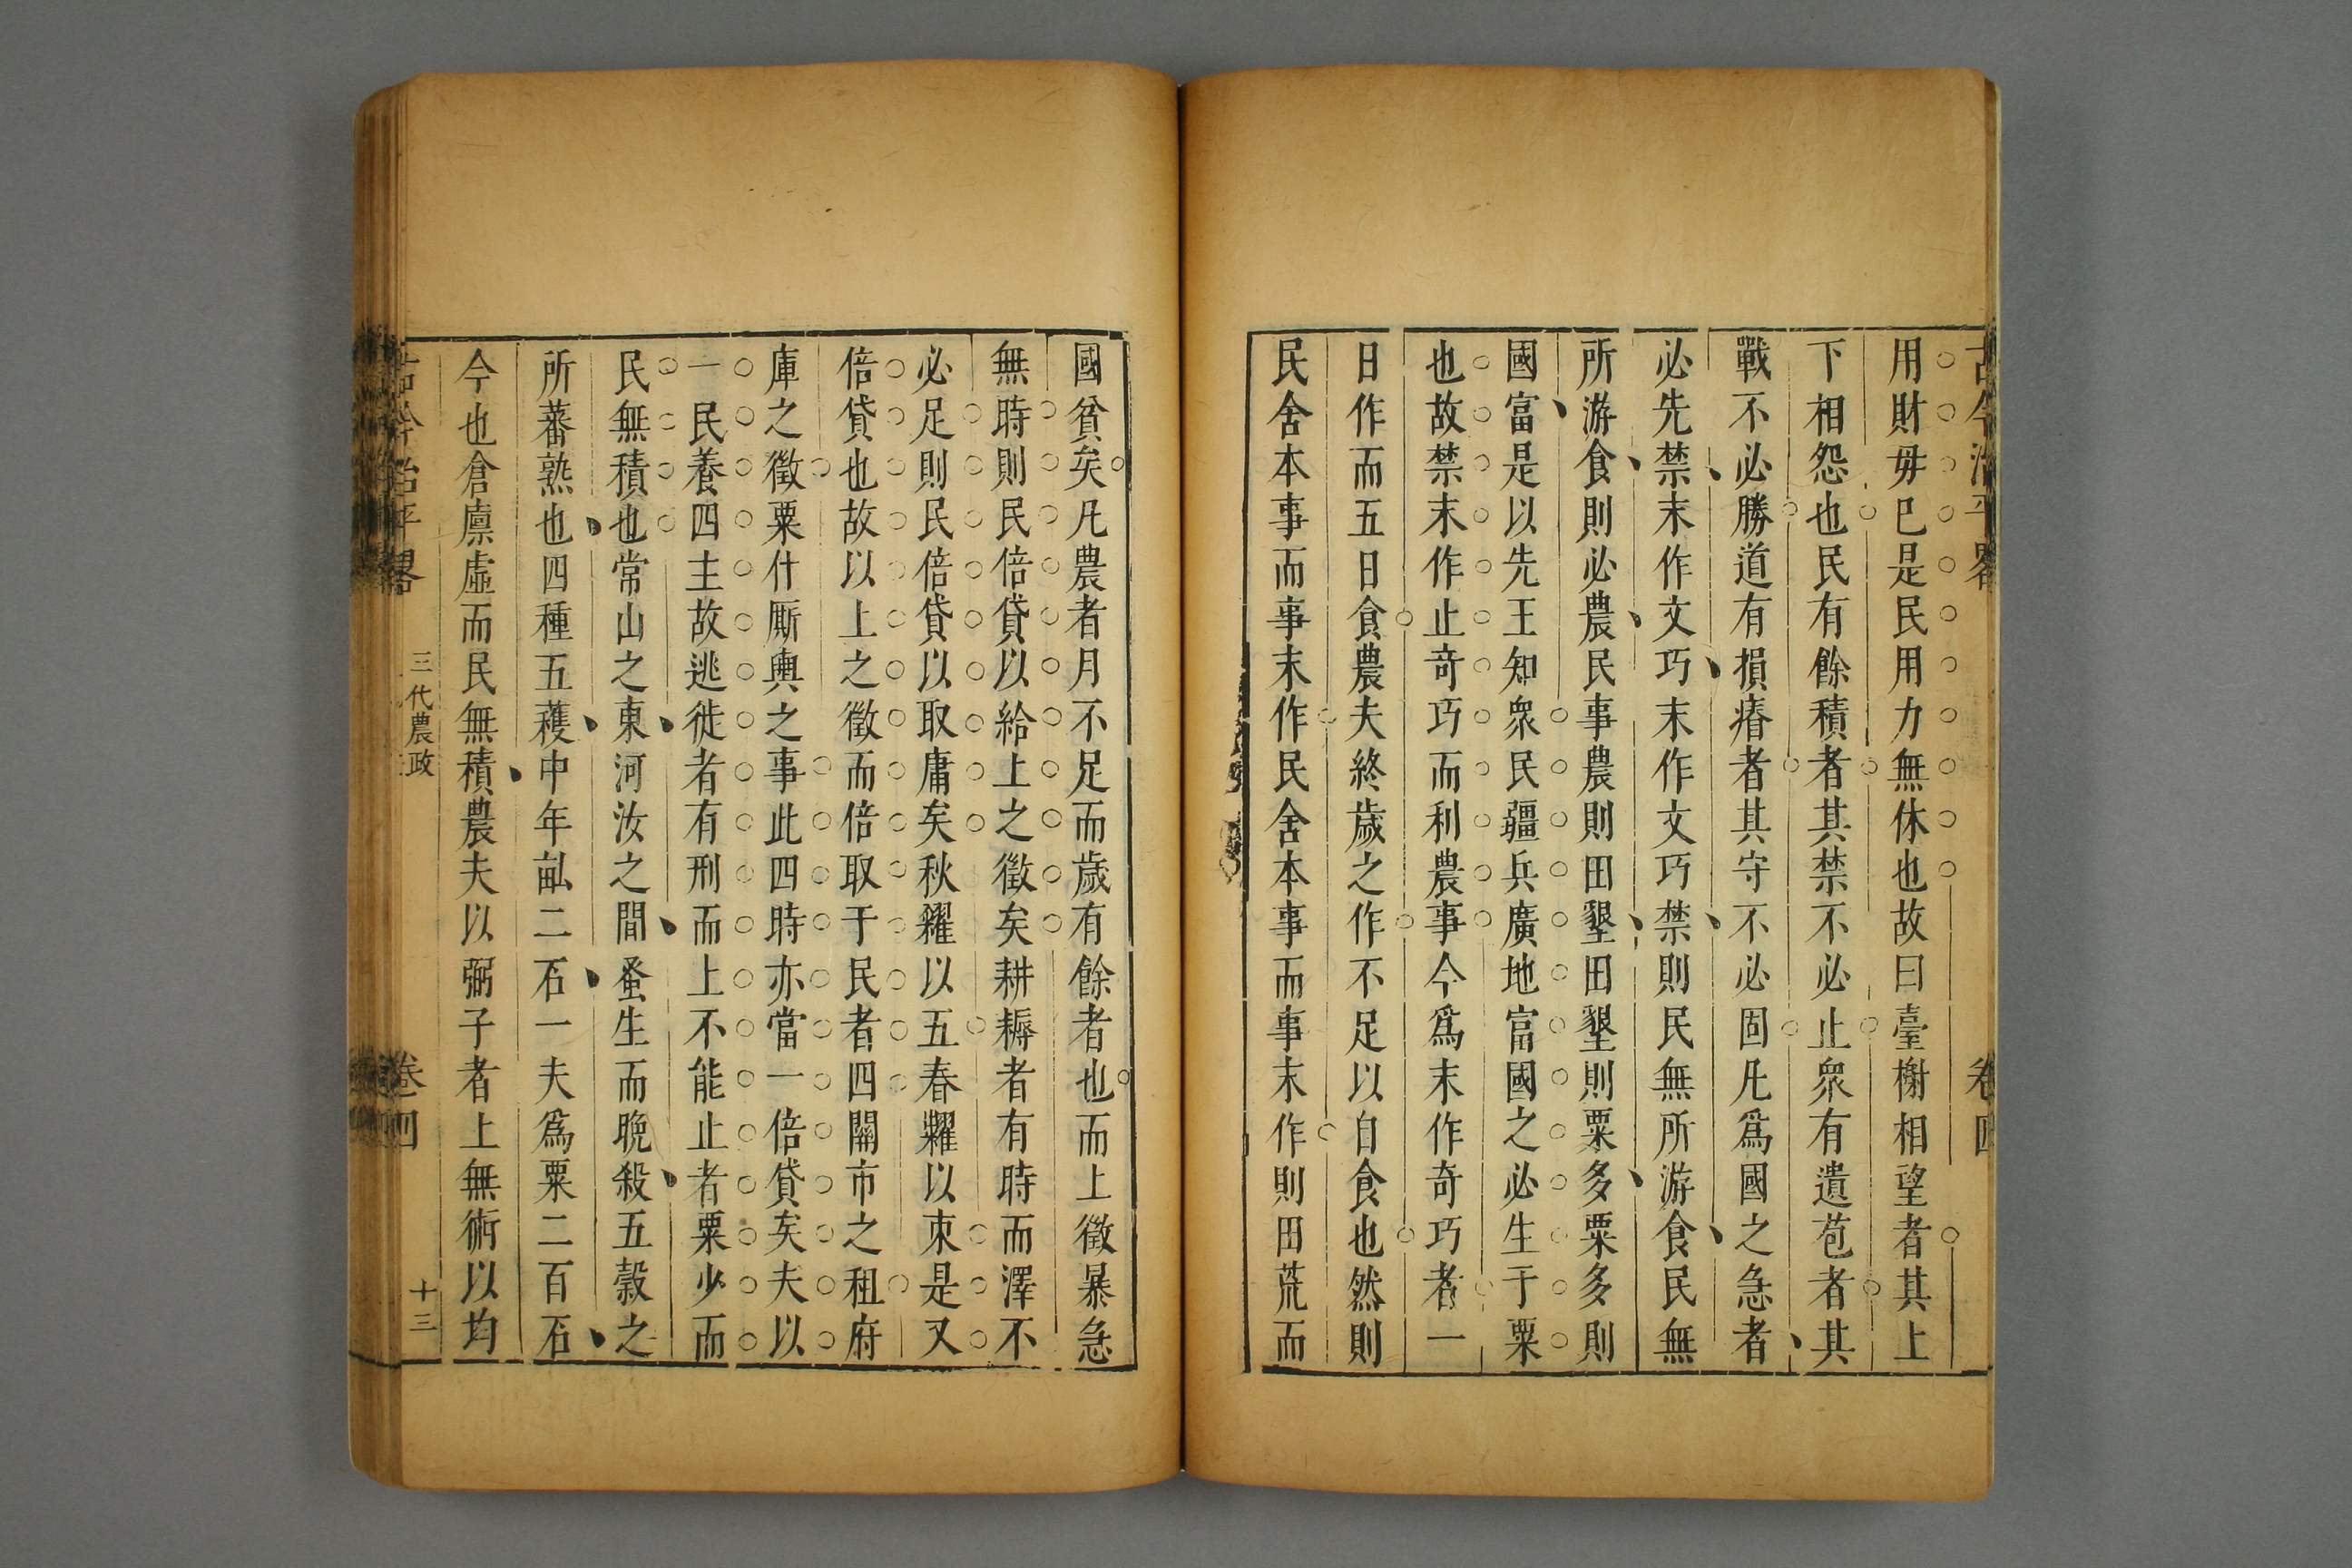 古今治平畧
卷四
用財毋已是民用力無休也故曰臺榭相望者其上
下相怨也民有餘積者其禁不必止衆有遺苞者其
戰不必勝道有損瘠者其守不必固凡爲國之急者
必先禁末作文巧末作文巧禁則民無所游食民無
所游食則必農民事農則田墾田墾則粟多粟多則
國富是以先王知衆民疆兵廣地富國之必生于粟
也故禁末作止奇巧而利農事今爲末作奇巧者一
日作而五日食農夫終歲之作不足以自食也然則
民舍本事而事末作民舍本事而事末作則田荒而
國貧矣凡農者月不足而歲有餘者也而上徵暴急
無時則民倍貸以給上之徵矣耕耨者有時而澤不
必足則民倍貸以取庸矣秋糴以五春糶以束是又
倍貸也故以上之徵而倍取于民者四關市之租府
庫之徵粟什厮輿之事此四時亦當一倍貸矣夫以
一民養四主故逃徙者有刑而上不能止者粟少而
民無積也常山之東河汝之間蚤生而晩殺五穀之
所蕃熟也四種五穫中年畝二石一夫爲粟二百石
今也倉廪虛而民無積農夫以粥子者上無術以均
古今治平畧
三代農政
卷四
十三